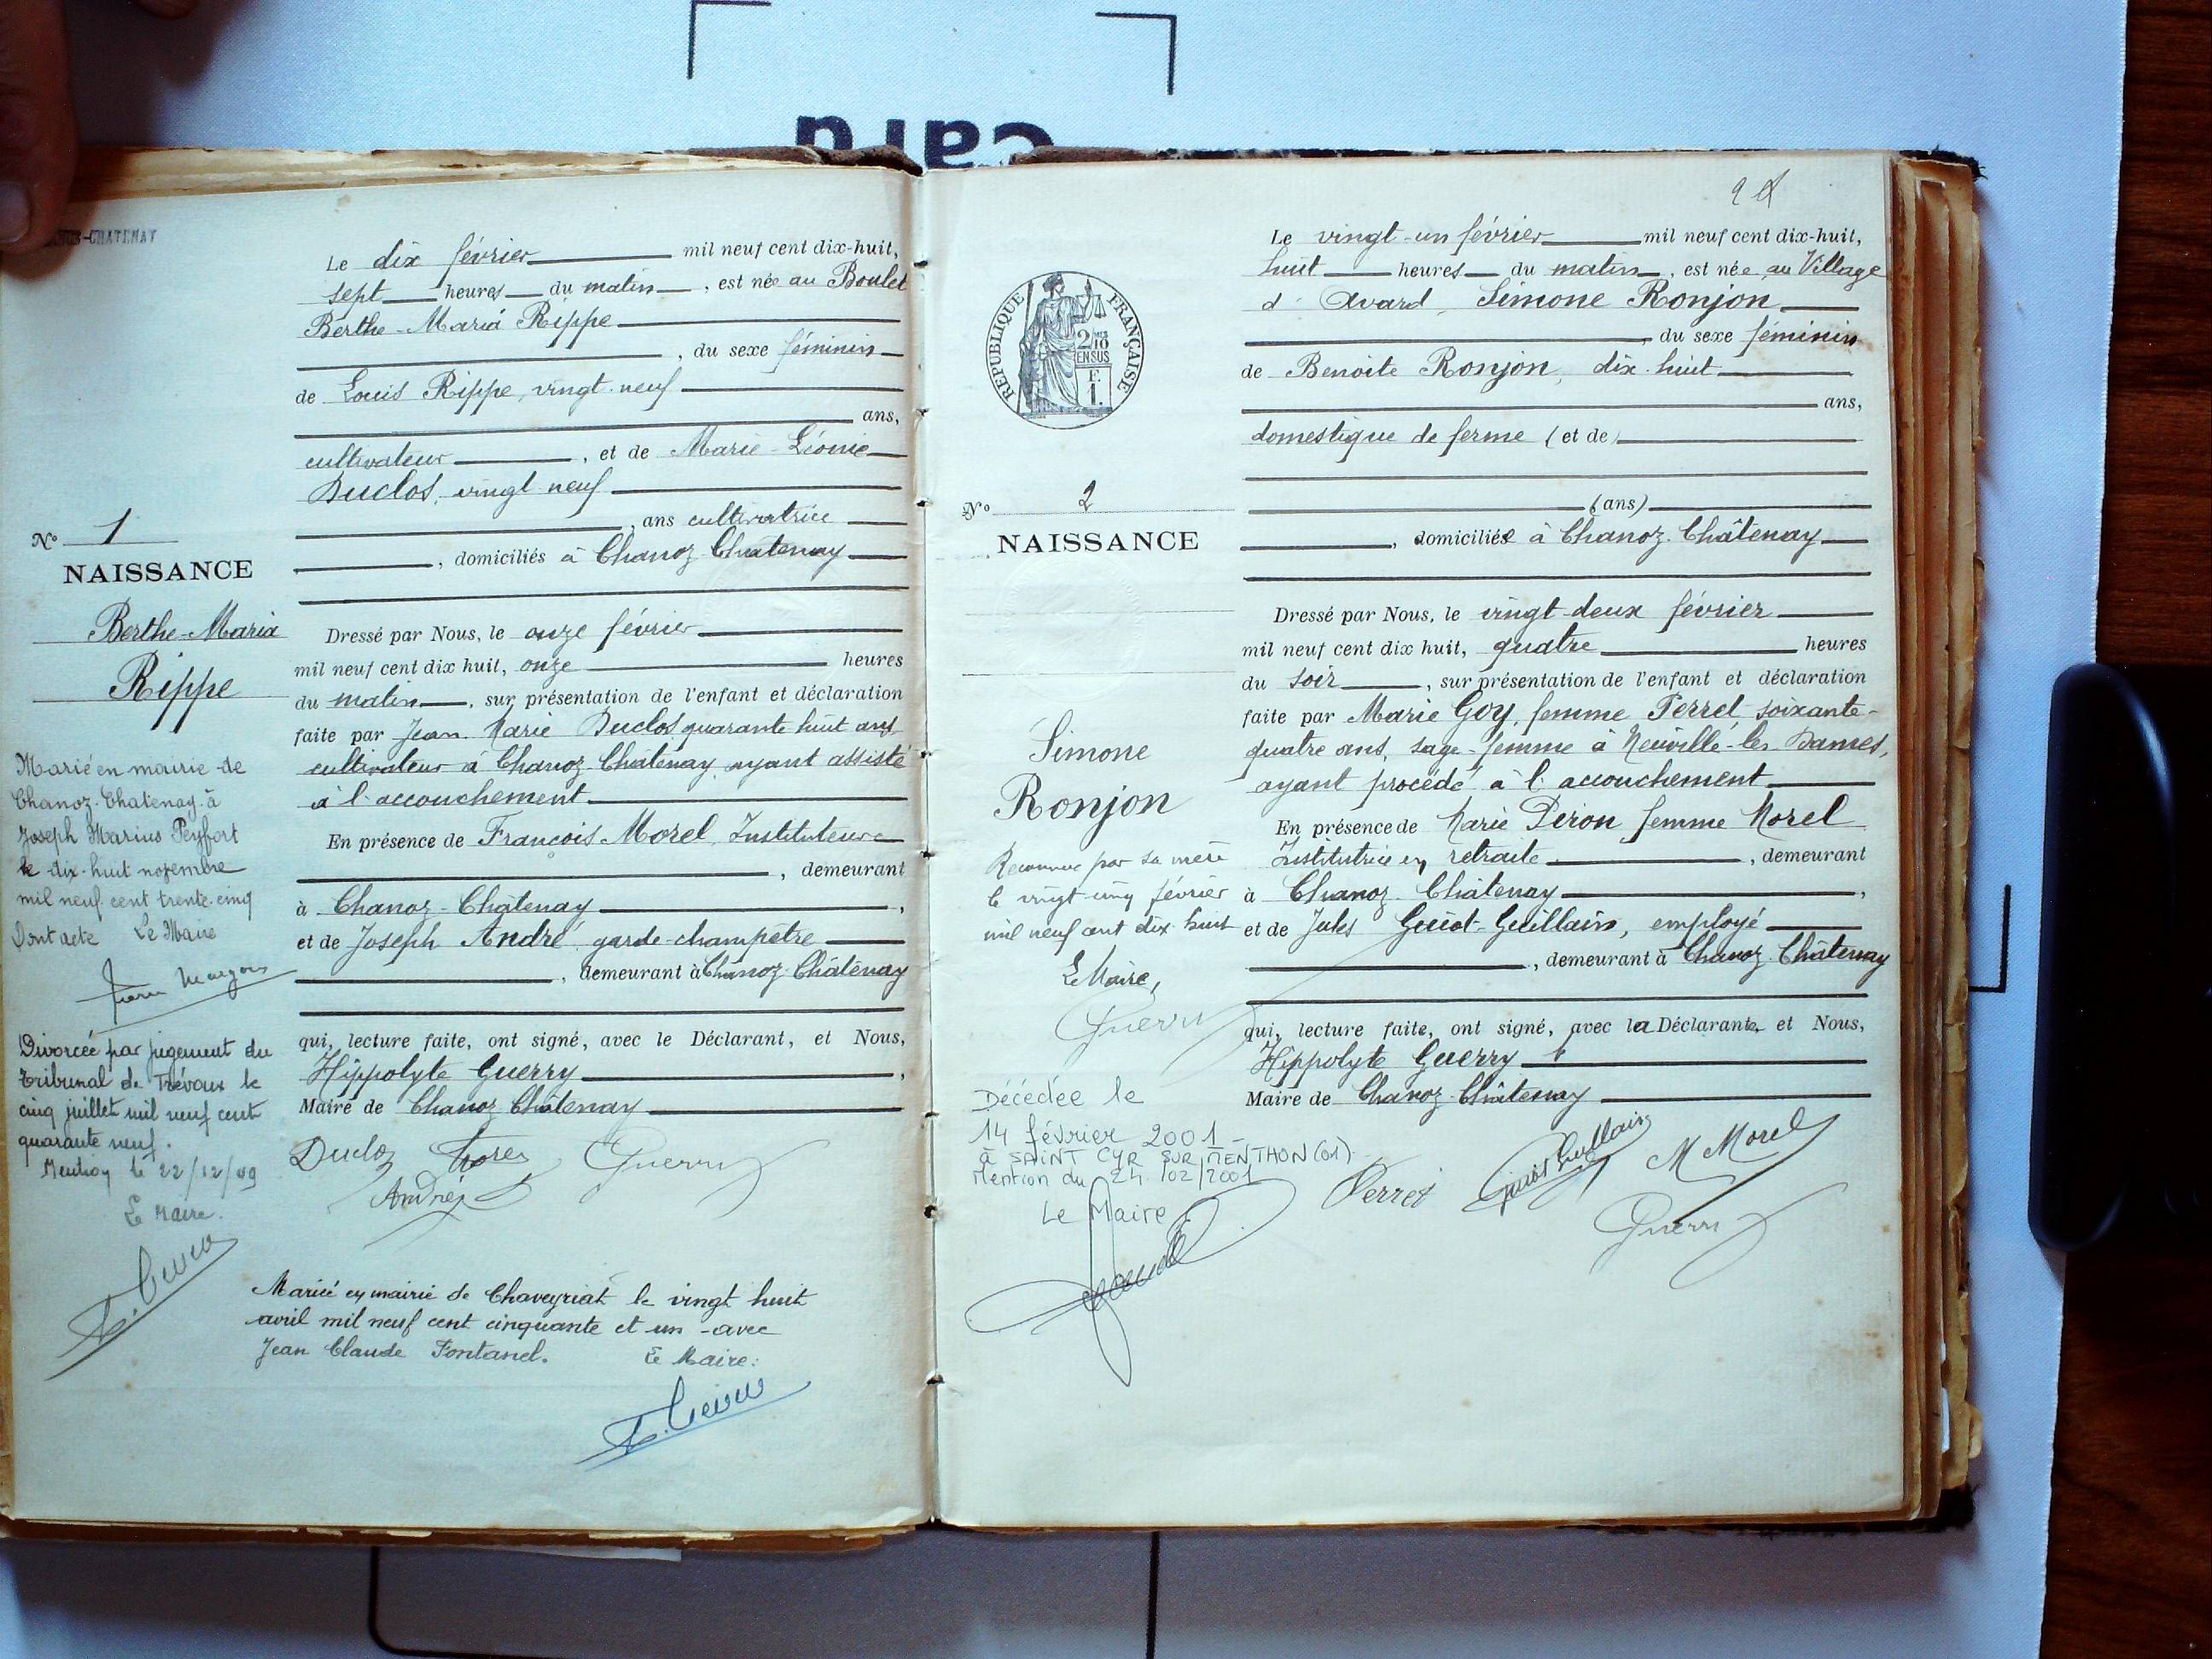 card
-CHATENAY
Le dix février mil neuf cent dix-huit,
sept heures du matin, est née au Boulet
Berthe-Maria Rippe
, du sexe féminin
de Louis Rippe, vingt-neuf
ans,
cultivateur, et de Marie-Léonie
Duclos, vingt neuf
, ans cultivatrice
, domiciliés à Chanoz-Châtenay
Dressé par Nous, le onze février
mil neuf cent dix huit, onze heures
du matin, sur présentation de l'enfant et déclaration
faite par Jean-Marie Duclos quarante huit ans
cultivateur à Chanoz-Châtenay, ayant assisté
à l'accouchement.
En présence de François Morel, Instituteur
, demeurant
à Chanoz-Châtenay,
et de Joseph André, garde-champêtre
, demeurant à Chanoz-Châtenay
qui, lecture faite, ont signé, avec le Déclarant, et Nous,
Hippolyte Guerry,
Maire de Chanoz-Châtenay
Duclos Morel Guerry
André
N° 1
NAISSANCE
Berthe-Maria
Rippe
Marié en mairie de
Chanoz-Chatenay à
Joseph Marius Peyfort
le dix-huit novembre
mil neuf cent trente-cinq
Dont acte Le Maire
Divorcée par jugement du
tribunal de Trévoux le
cinq juillet mil neuf cent
quarante neuf.
Mention le 22/12/49
Le Maire.
Mariée en mairie de Chaveyriat le vingt huit
avril mil neuf cent cinquante et un - avec
Jean Claude Fontanel. Le Maire:
2
REPUBLIQUE FRANÇAISE
2/10 EN SUS
F.
1.
N° 2
NAISSANCE
Simone
Ronjon
Reconnue par sa mère
le vingt-cinq février
mil neuf cent dix-huit
Le Maire,
Guerry
Décédée le
14 février 2001
à SAINT CYR SUR MENTHON (01).
Mention du 24/02/2001
Le Maire
Le vingt-un février mil neuf cent dix-huit,
huit heures du matin, est née au Village
d'Avard, Simone Ronjon
, du sexe féminin
de Benoite Ronjon, dix-huit
ans,
domestique de ferme (et de)
(ans)
, domiciliée à Chanoz-Châtenay
Dressé par Nous, le vingt-deux février
mil neuf cent dix huit, quatre heures
du soir, sur présentation de l'enfant et déclaration
faite par Marie Goy, femme Perret, soixante-
quatre ans, sage-femme à Neuville-les-Dames,
ayant procédé à l'accouchement
En présence de Marie Piron femme Morel
Institutrice en retraite, demeurant
à Chanoz-Châtenay,
et de Jules Guiot-Guillain, employé
, demeurant à Chanoz-Châtenay
qui, lecture faite, ont signé, avec la Déclarante, et Nous,
Hippolyte Guerry
Maire de Chanoz-Châtenay
Perret Guiot Guillain M Morel
Guerry